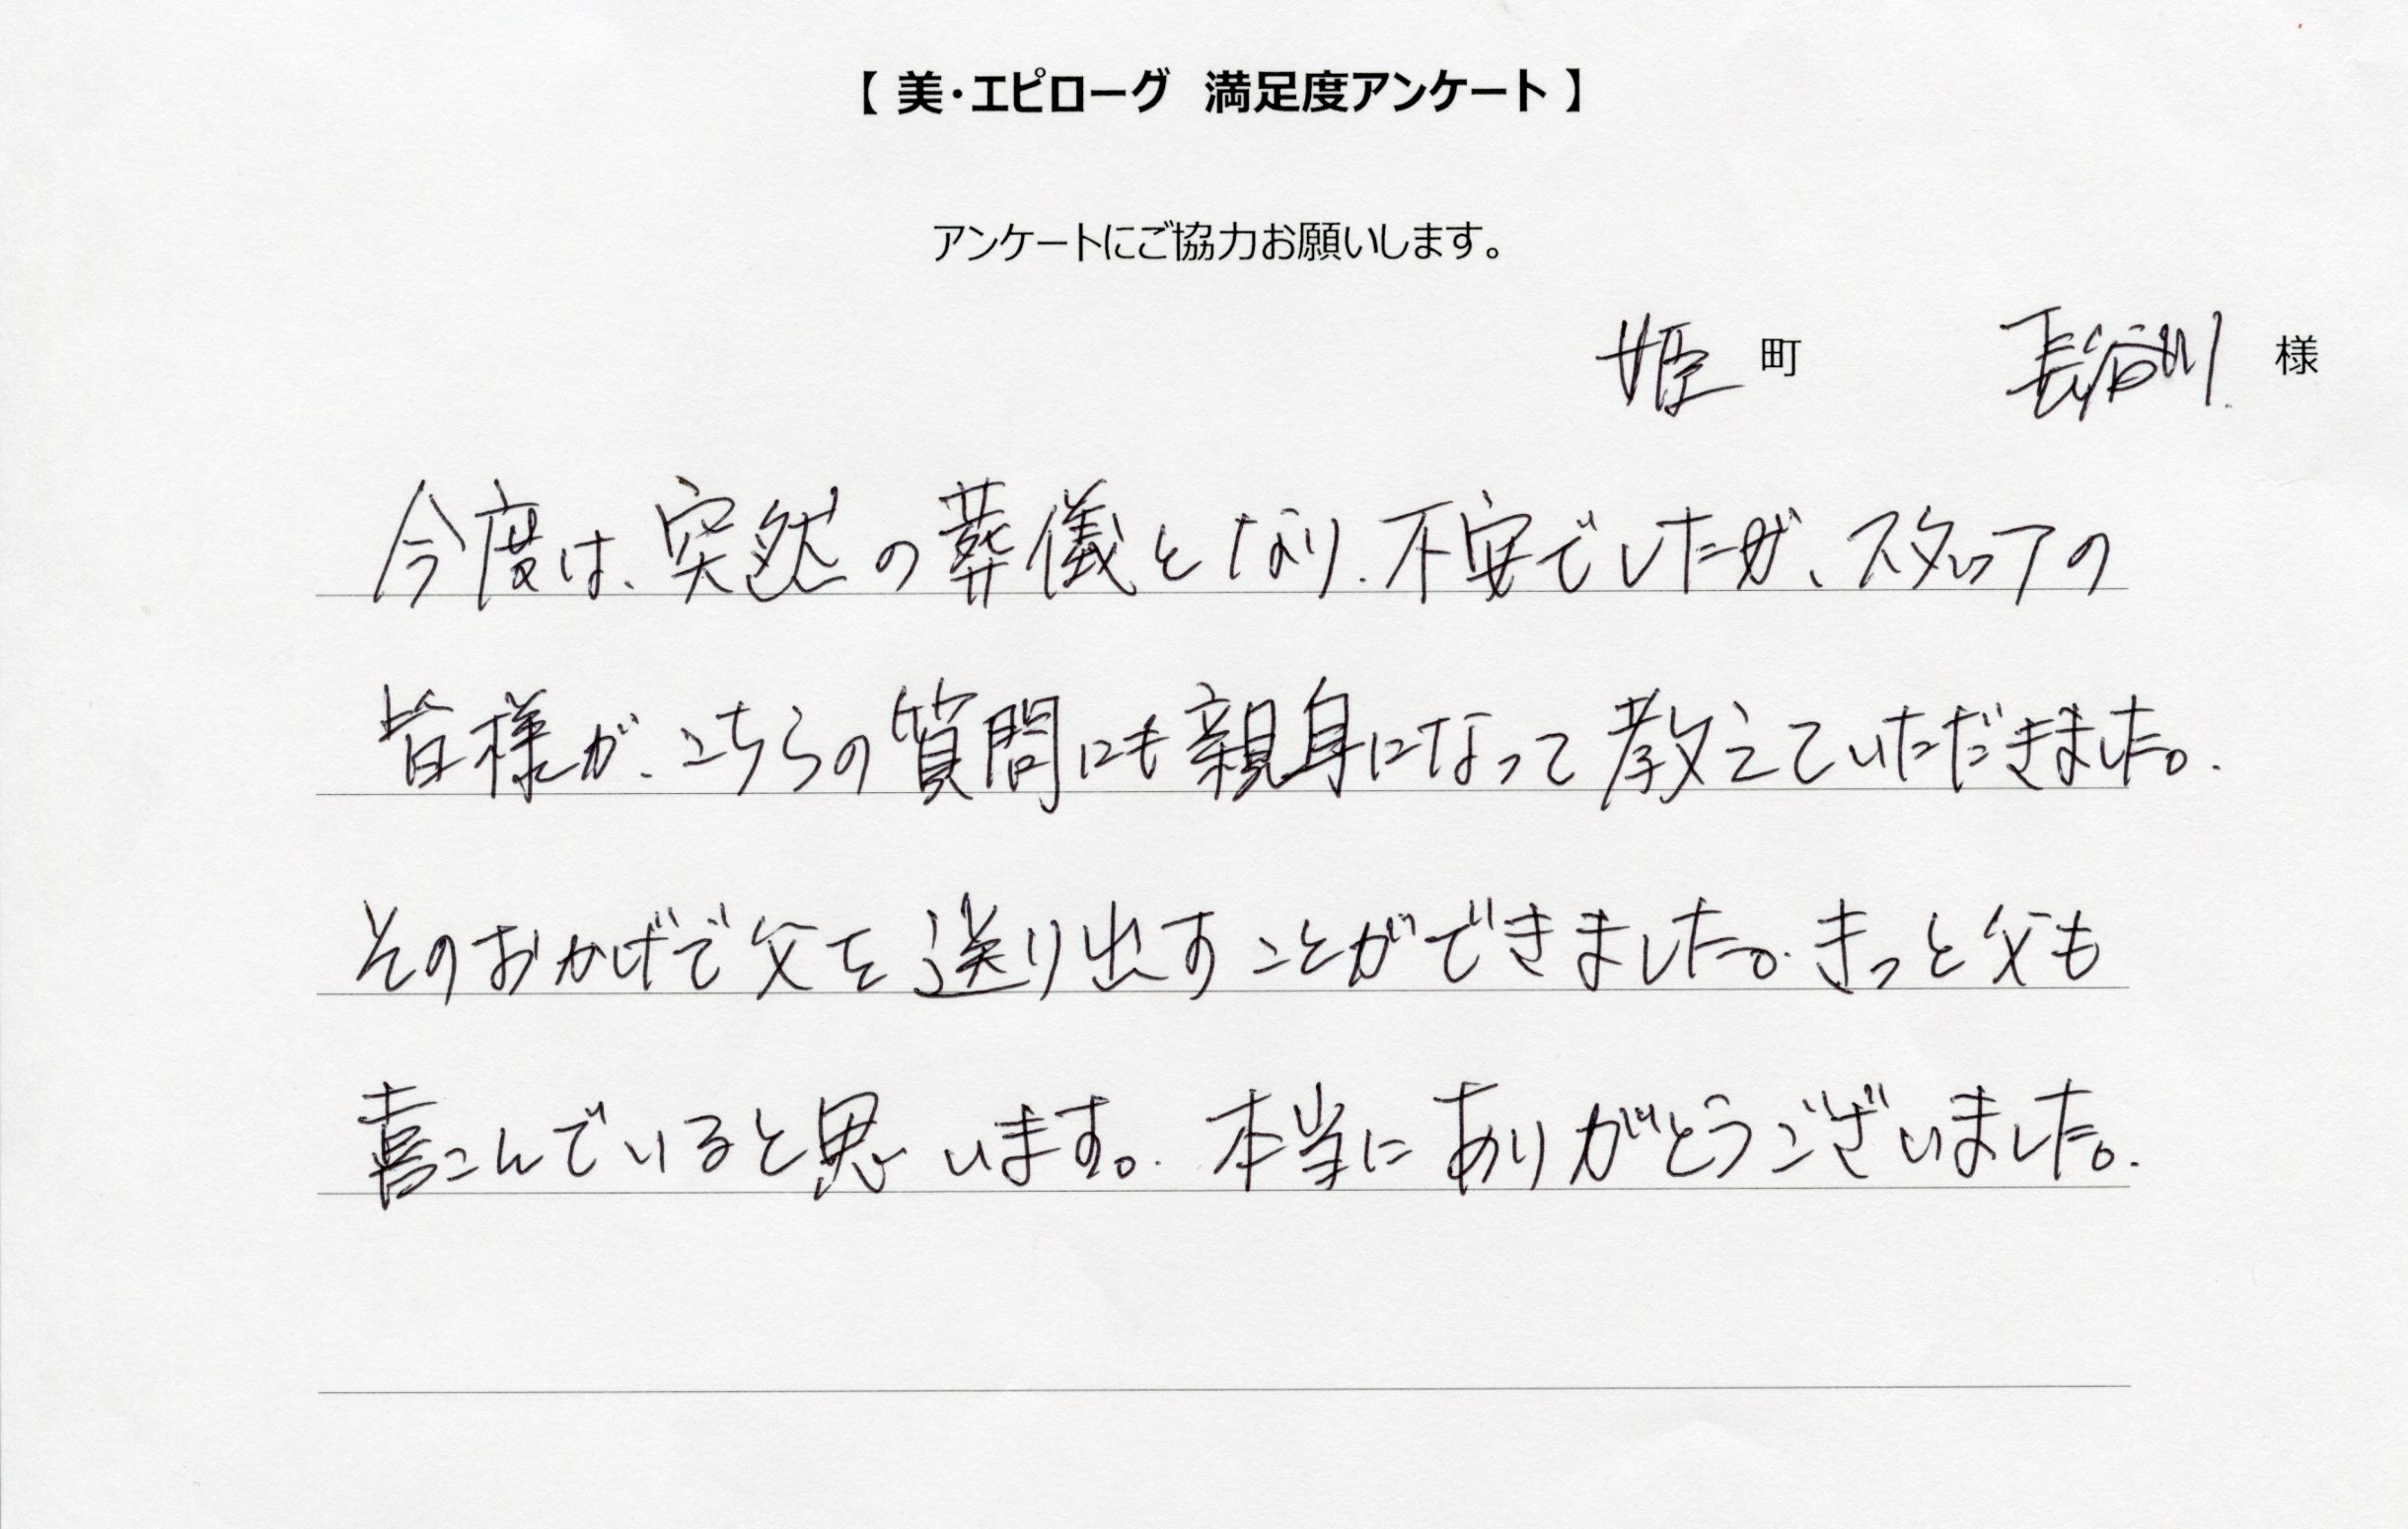 【 美・エピローグ 満足度アンケート 】
アンケートにご協力お願いします。
姫 町 長谷川 様
今度は、突然の葬儀となり、不安でしたが、スタッフの
皆様が、こちらの質問にも親身になって教えていただきました。
そのおかげで父を送り出すことができました。きっと父も
喜こんでいると思います。本当にありがとうございました。